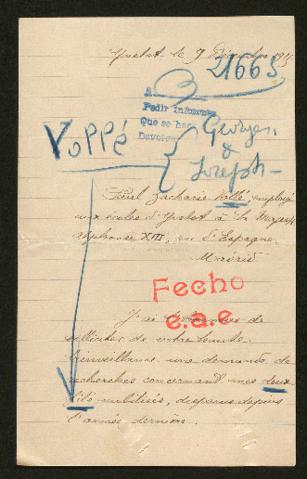 Yvetot le 9 Décembre 1915
21663
A
Pedir Informes
Que se hace
Devolver
VALLÉ
Georges
&
Joseph
Paul Zacharie Vallé, employé
aux écoles d'Yvetot à Sa Majesté
Alphonse XIII, roi d'Espagne
Madrid
Fecho
e.a.e
J'ai l'honneur de
solliciter de votre haute
bienveillance une demande de
recherches concernant mes deux
fils mobilisés, disparus depuis
l'année dernière.